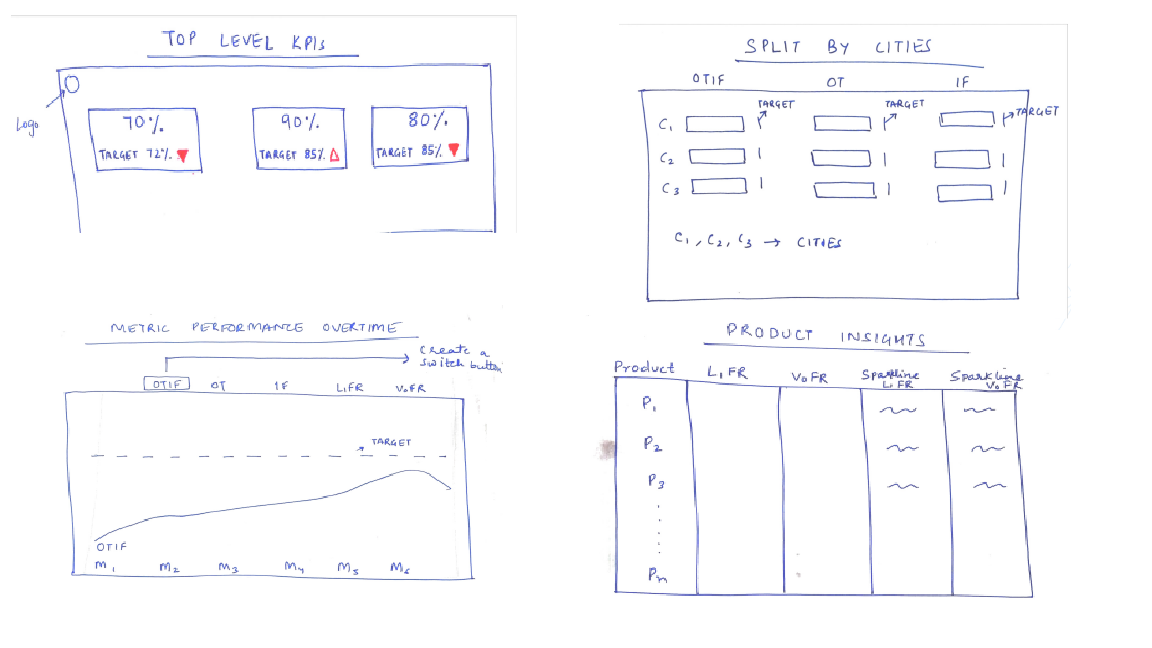 TOP LEVEL KPIs
Logo
70%
TARGET 72%
90%
TARGET 85%
80%
TARGET 85%
SPLIT BY CITIES
OTIF OT IF
TARGET TARGET TARGET
C1
C2
C3
C1, C2, C3 → CITIES
METRIC PERFORMANCE OVERTIME
Create a
switch button
OTIF OT IF LIFR VOFR
TARGET
OTIF
M1 M2 M3 M4 M5 M6
PRODUCT INSIGHTS
Product LIFR VOFR Sparkline LIFR Sparkline VOFR
P1
P2
P3
Pn